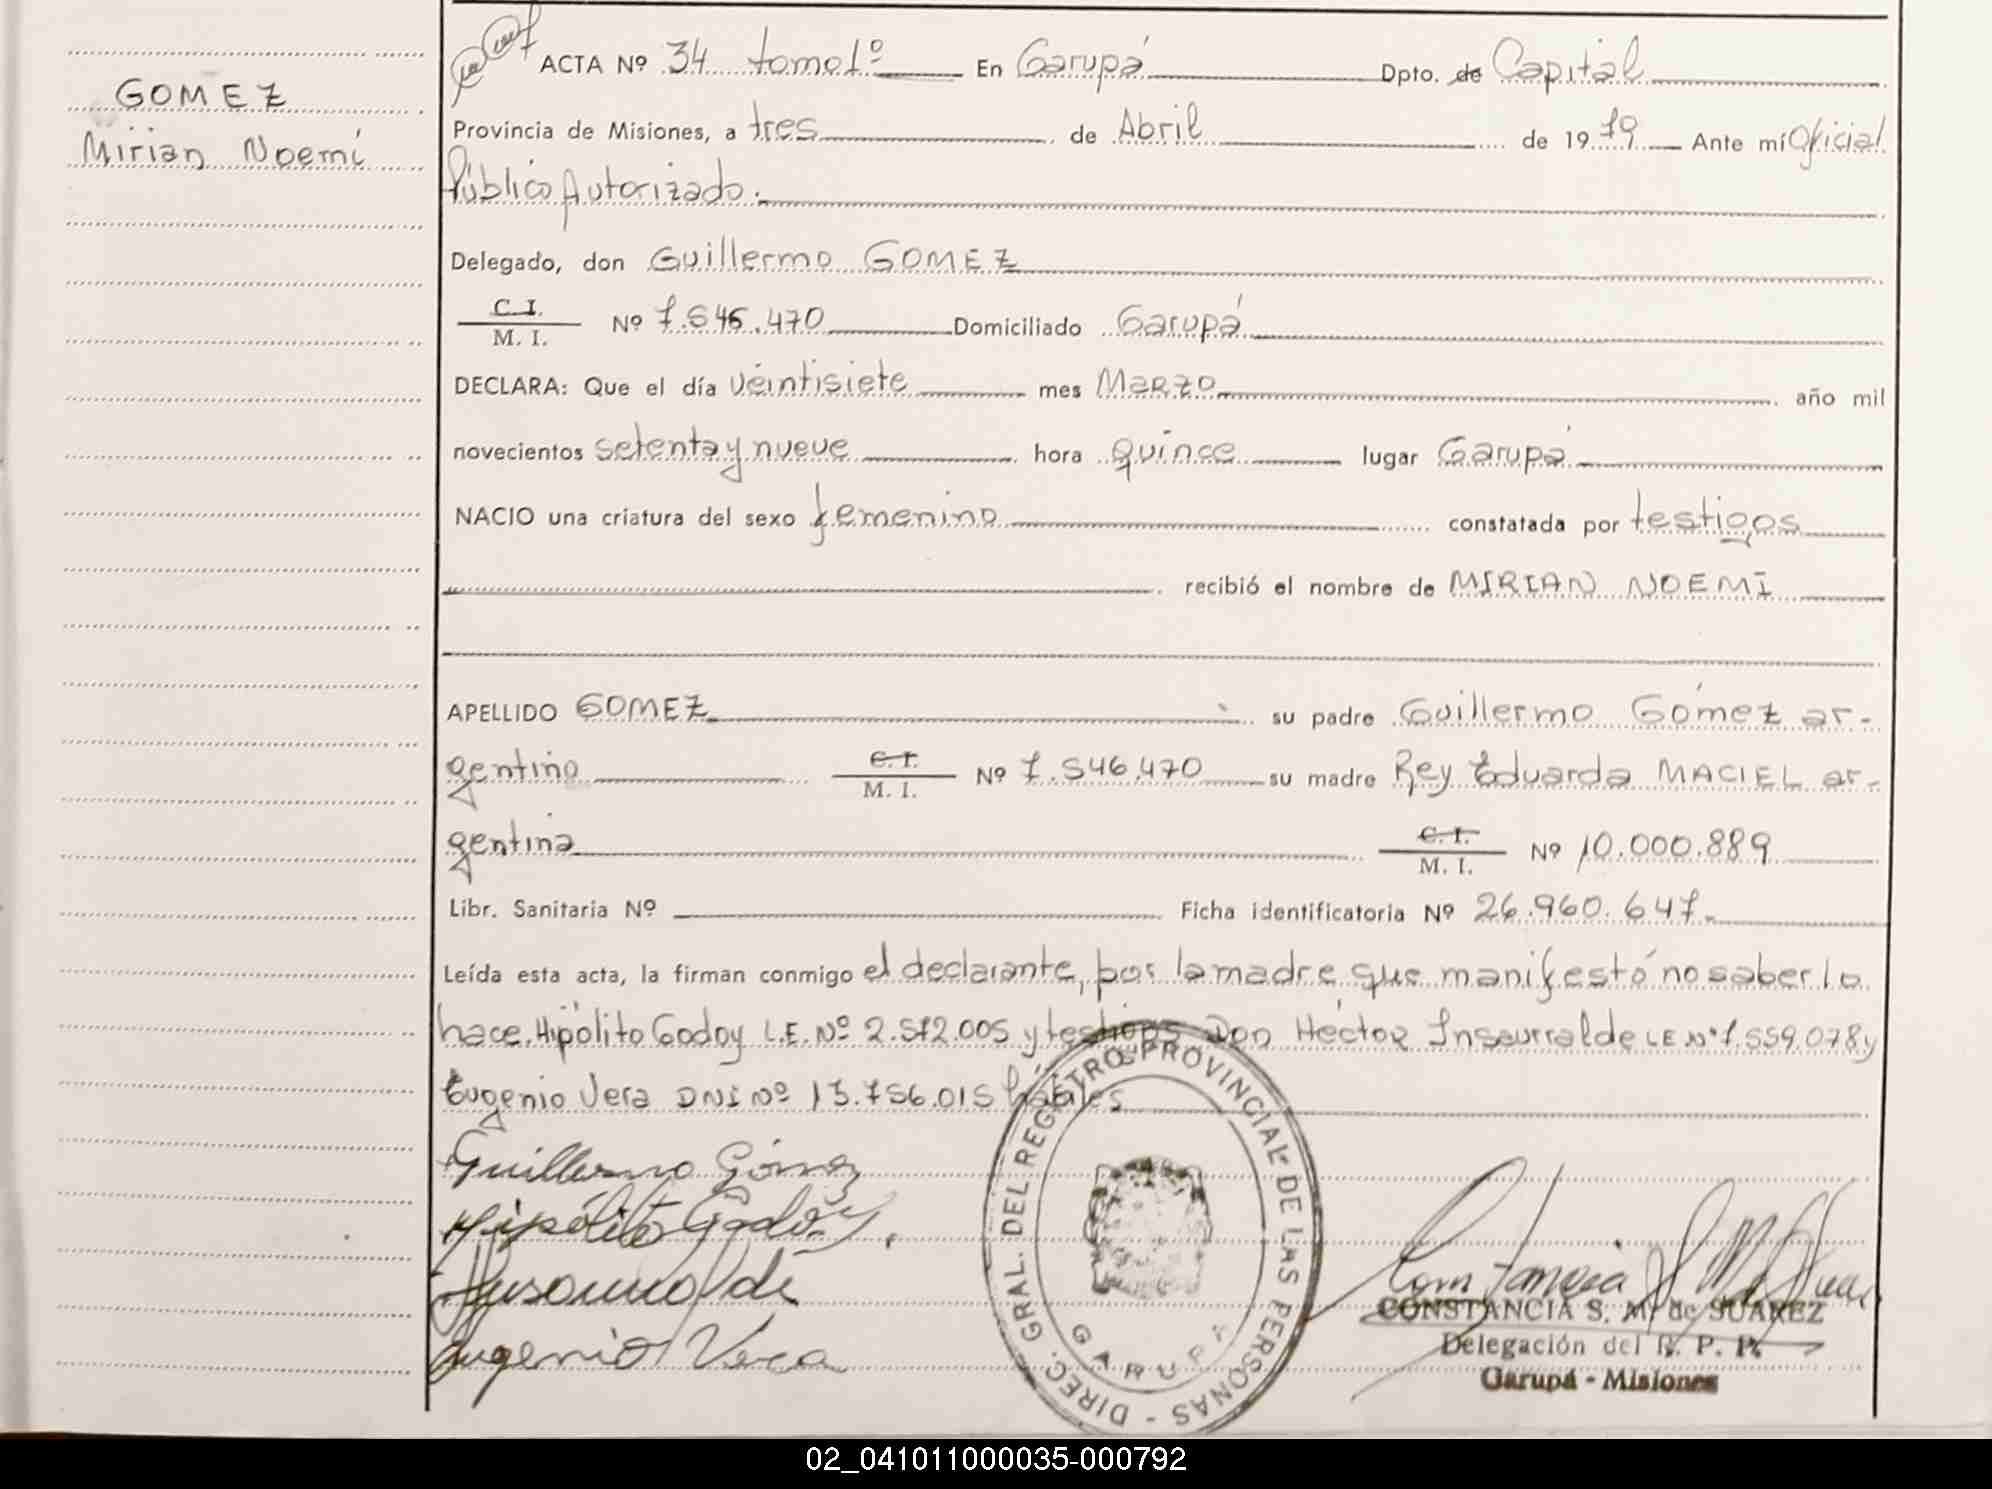 GOMEZ
Mirian Noemí
ACTA Nº 34 tomo 1º En Garupá Dpto. de Capital
Provincia de Misiones, a tres de Abril de 19 79 Ante mí Oficial
Público Autorizado.
Delegado, don Guillermo GOMEZ
C. I.
M. I.
Nº 7.546.470 Domiciliado Garupá
DECLARA: Que el día veintisiete mes Marzo año mil
novecientos setenta y nueve hora quince lugar Garupá
NACIO una criatura del sexo femenino constatada por testigos
recibió el nombre de MIRIAN NOEMI
APELLIDO GOMEZ su padre Guillermo Gómez ar-
gentino C. I. M. I. Nº 7.546.470 su madre Rey Eduarda MACIEL ar-
gentina C. I. M. I. Nº 10.000.889
Libr. Sanitaria Nº Ficha identificatoria Nº 26.960.647.-
Leída esta acta, la firman conmigo el declarante, por la madre que manifestó no saberlo
hace Hipólito Godoy L.E. Nº 2.572.005 y testigos Don Héctor Insaurralde LE Nº 7.559.078 y
Eugenio Vera DNI Nº 13.756.015 hábiles
Guillermo Gómez
Hipólito Godoy.
Insaurralde
Eugenio Vera
DIREC. GRAL. DEL REGISTRO PROVINCIAL DE LAS PERSONAS -
GARUPA
CONSTANCIA S. M. de SUAREZ
Delegación del R. P. P.
Garupá - Misiones
02_041011000035-000792